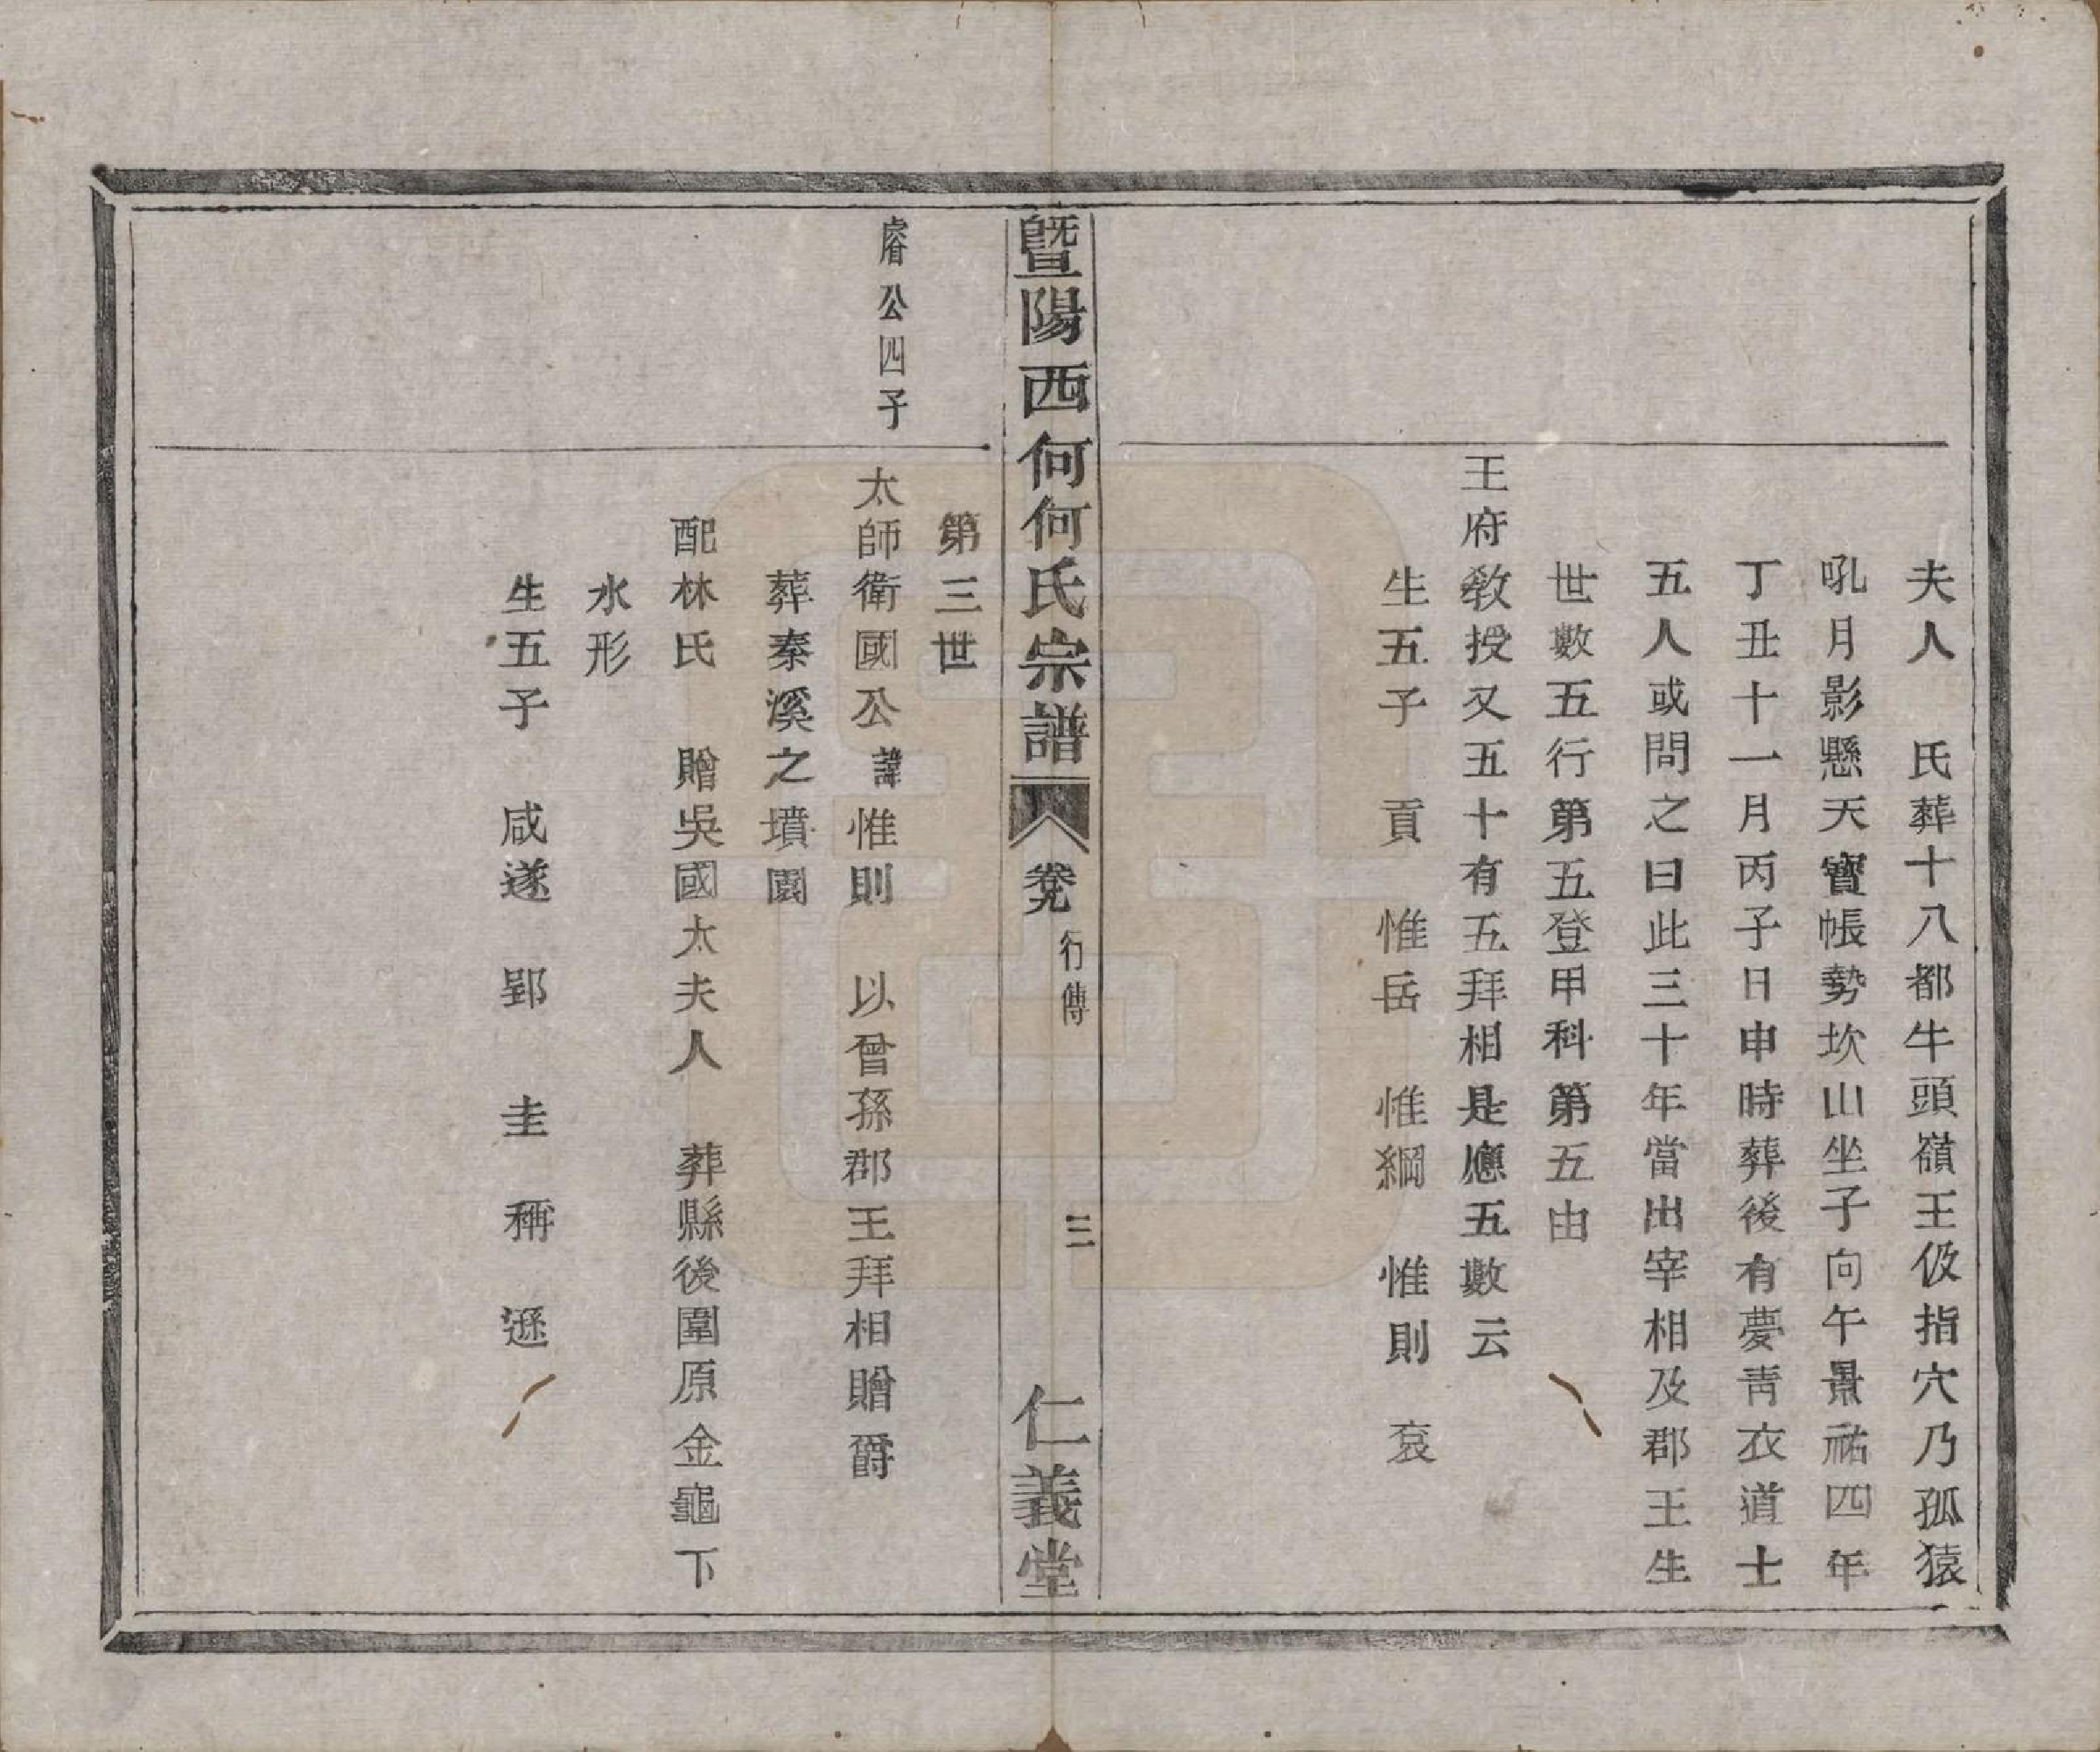 夫人　氏葬十八都牛頭嶺王伋指穴乃孤猿
吼月影懸天寶帳勢坎山坐子向午景祐四年
丁丑十一月丙子日申時葬後有夢青衣道士
五人或問之曰此三十年當出宰相及郡王生
世數五行第五登甲科第五由
王府敎授又五十有五拜相是應五數云
生五子　貢　惟岳　惟綱　惟則　袞
暨陽西何何氏宗譜
卷九　行傳　三　仁義堂
第三世
睿公四子
太師衛國公諱惟則　以曾孫郡王拜相贈爵
葬秦溪之墳園
配林氏　贈吳國太夫人　葬縣後圍原金龜下
水形
生五子　咸遂　郢　圭　稱　遜